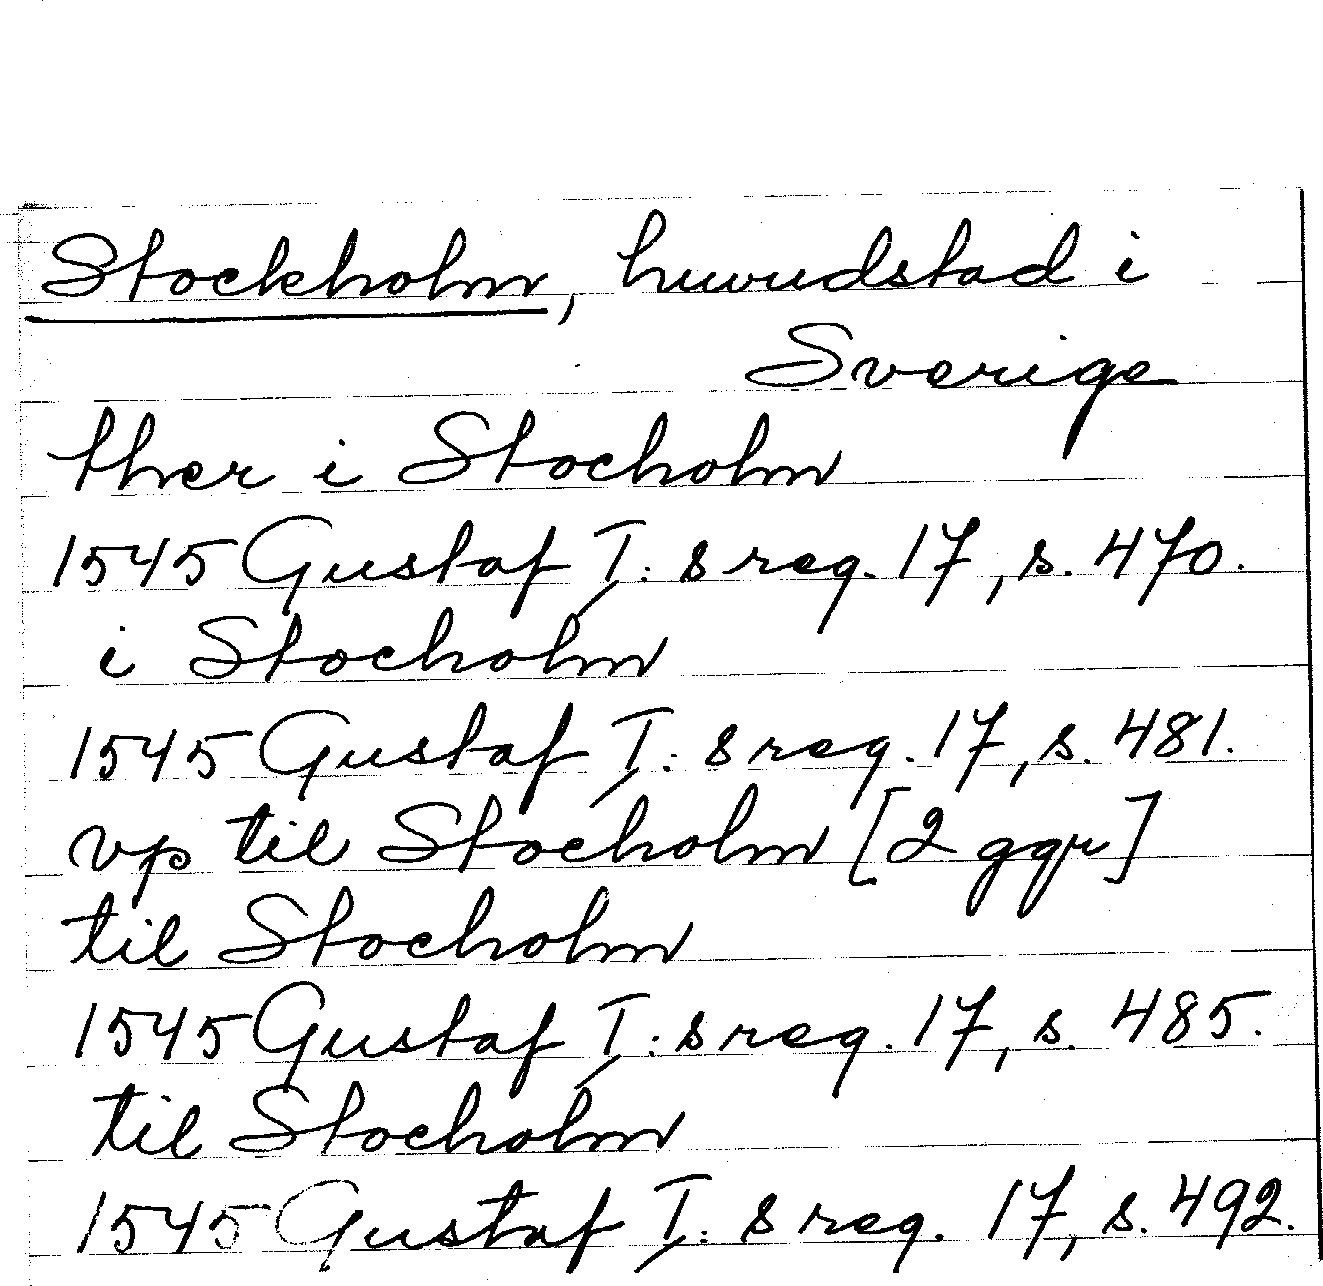 Stockholm, huvudstad i
Sverige
ther i Stocholm
1545 Gustaf I: s reg. 17, s. 470.
i Stocholm
1545 Gustaf I: s reg. 17, s. 481.
vp til Stocholm [2 ggr]
til Stocholm
1545 Gustaf I: s reg. 17, s. 485.
til Stocholm
1545 Gustaf I: s reg. 17, s. 492.